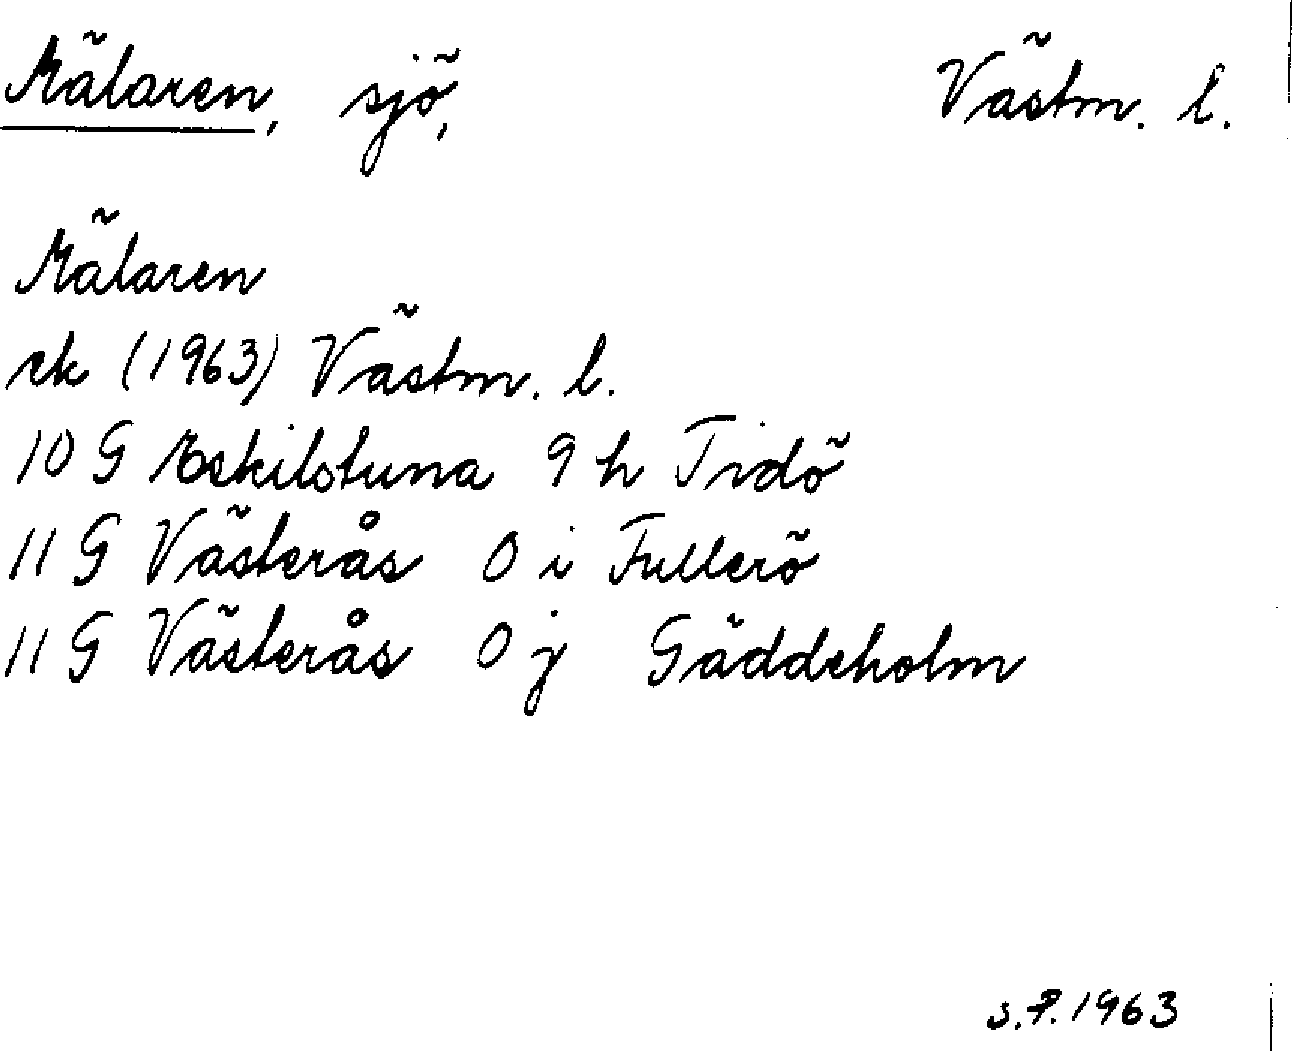 Mälaren, sjö, Västm. l.
Mälaren
ek (1963) Västm. l.
10 G Eskilstuna 9 h Tidö
11 G Västerås 0 i Fullerö
11 G Västerås 0 j Gäddeholm
S.P. 1963